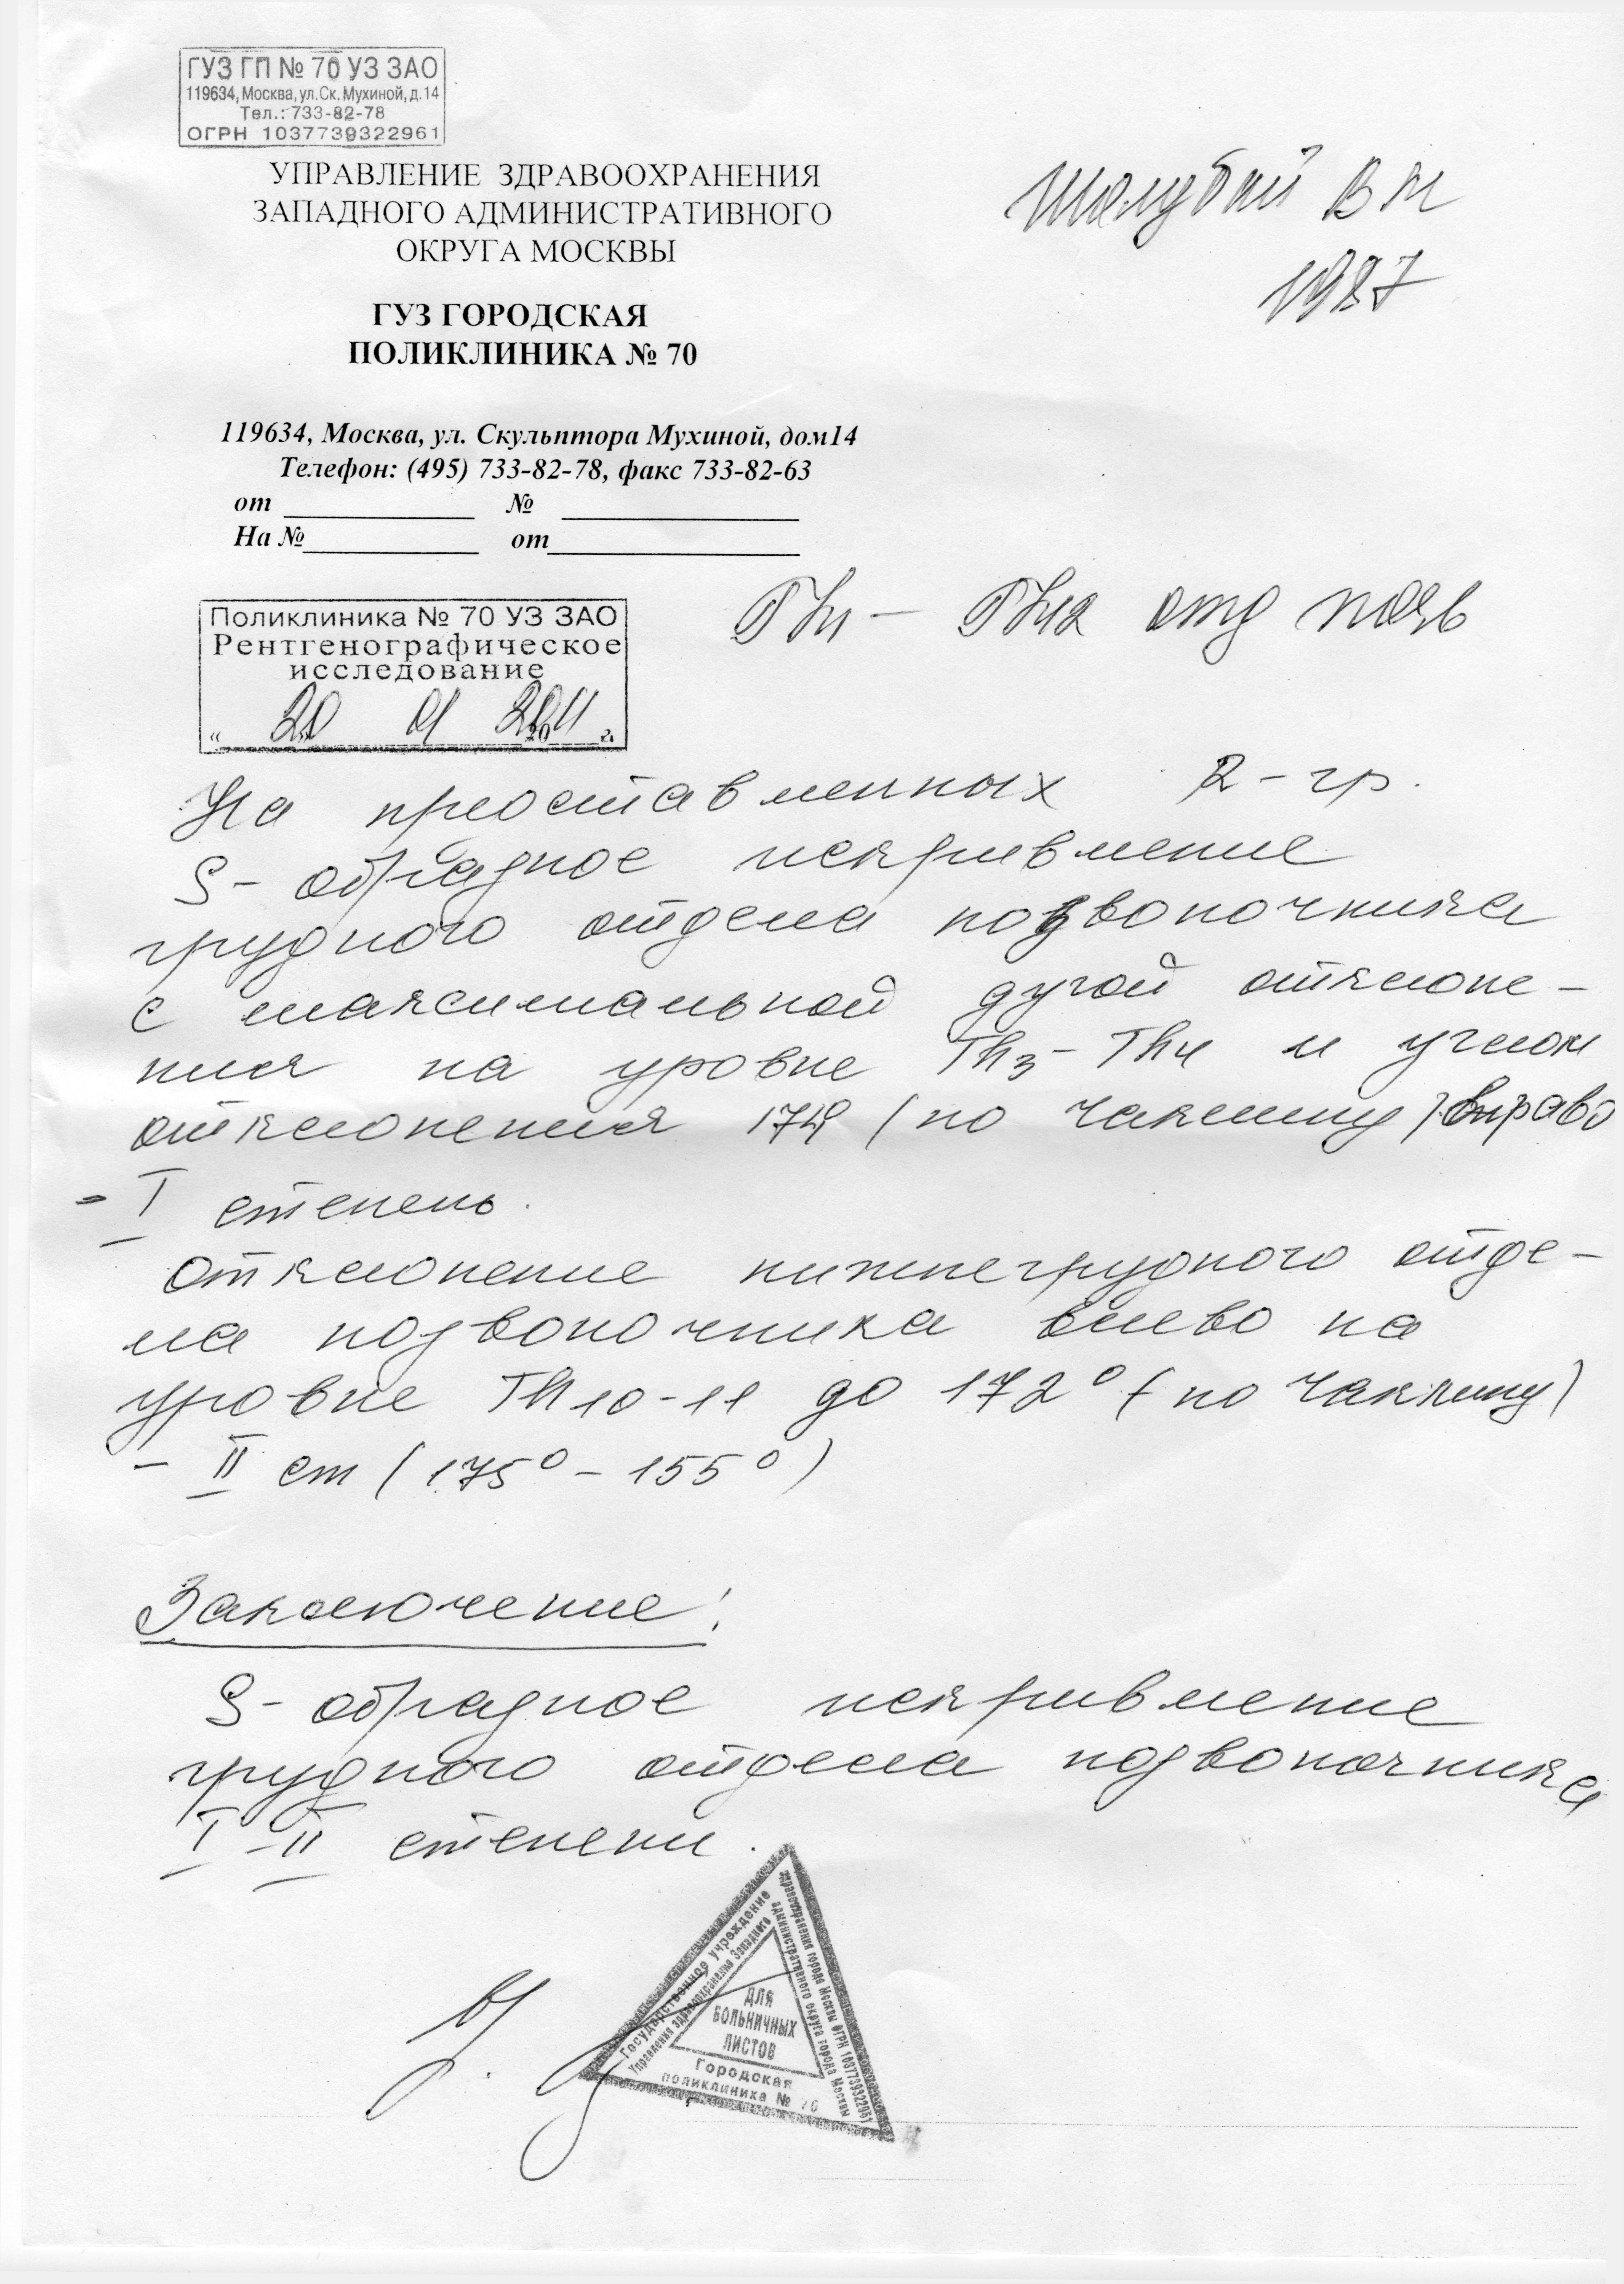 ГУЗ ГП № 70 УЗ ЗАО
119634, Москва, ул.Ск. Мухиной, д.14
Тел.: 733-82-78
ОГРН 1037739322961
УПРАВЛЕНИЕ ЗДРАВООХРАНЕНИЯ
ЗАПАДНОГО АДМИНИСТРАТИВНОГО
ОКРУГА МОСКВЫ
ГУЗ ГОРОДСКАЯ
ПОЛИКЛИНИКА № 70
119634, Москва, ул. Скульптора Мухиной, дом14
Телефон: (495) 733-82-78, факс 733-82-63
от №
На № от
В М
1987
Поликлиника № 70 УЗ ЗАО
Рентгенографическое
исследование
« 20 01 2011 г.
Th1 – Th12 отд позв
На представленных R-гр.
S-образное искривление
грудного отдела позвоночника
с максимальной дугой отклоне-
ния на уровне Th3-Th4 и углом
отклонения (по Чаклину) вправо
- I степень.
Отклонение нижнегрудного отде-
ла позвоночника влево на
уровне Th10-11 до 172° (по Чаклину)
- II ст (175° - 155°)
Заключение:
S-образное искривление
грудного отдела позвоночника
I - II степени.
Государственное учреждение
Управления здравоохранения Западного
здравоохранения города Москвы ОГРН 1037739322961
административного округа города Москвы
ДЛЯ
БОЛЬНИЧНЫХ
ЛИСТОВ
Городская
поликлиника № 70